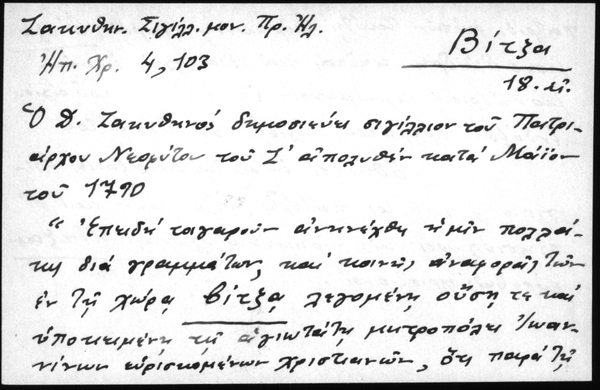 Ζακυθην. Σιγίλλ. μον. Πρ. Ἠλ.
Ἠπ. Χρ. 4, 103
Βίτζα
18. αἰ.
Ὁ Δ. Ζακυθηνός δημοσιεύει σιγίλλιον τοῦ Πατρι-
άρχου Νεοφύτου τοῦ Ζ' ἀπολυθέν κατά Μάϊον
τοῦ 1790
“ Ἐπειδή τοιγαροῦν ἀνηνέχθη ἡμῖν πολλά-
κις διά γραμμάτων, καί κοινῆς ἀναφορᾶς τῶν
ἐν τῇ χώρᾳ Βίτζᾳ λεγομένῃ οὔσῃ τε καί
ὑποκειμένῃ τῇ ἁγιωτάτῃ μητροπόλει Ἰωαν-
νίνων εὑρισκομένων χριστιανῶν, ὅτι παρά τῇ